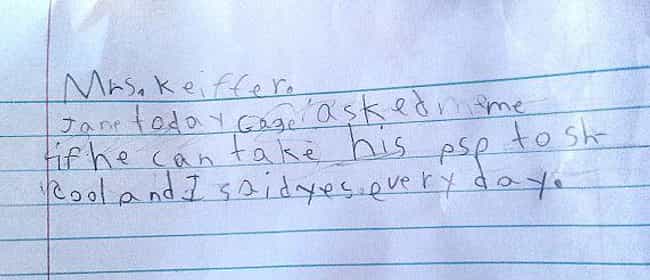 Mrs. Keiffer.
Jane today Gage asked me
if he can take his psp to sh
kool and I said yes. every day.